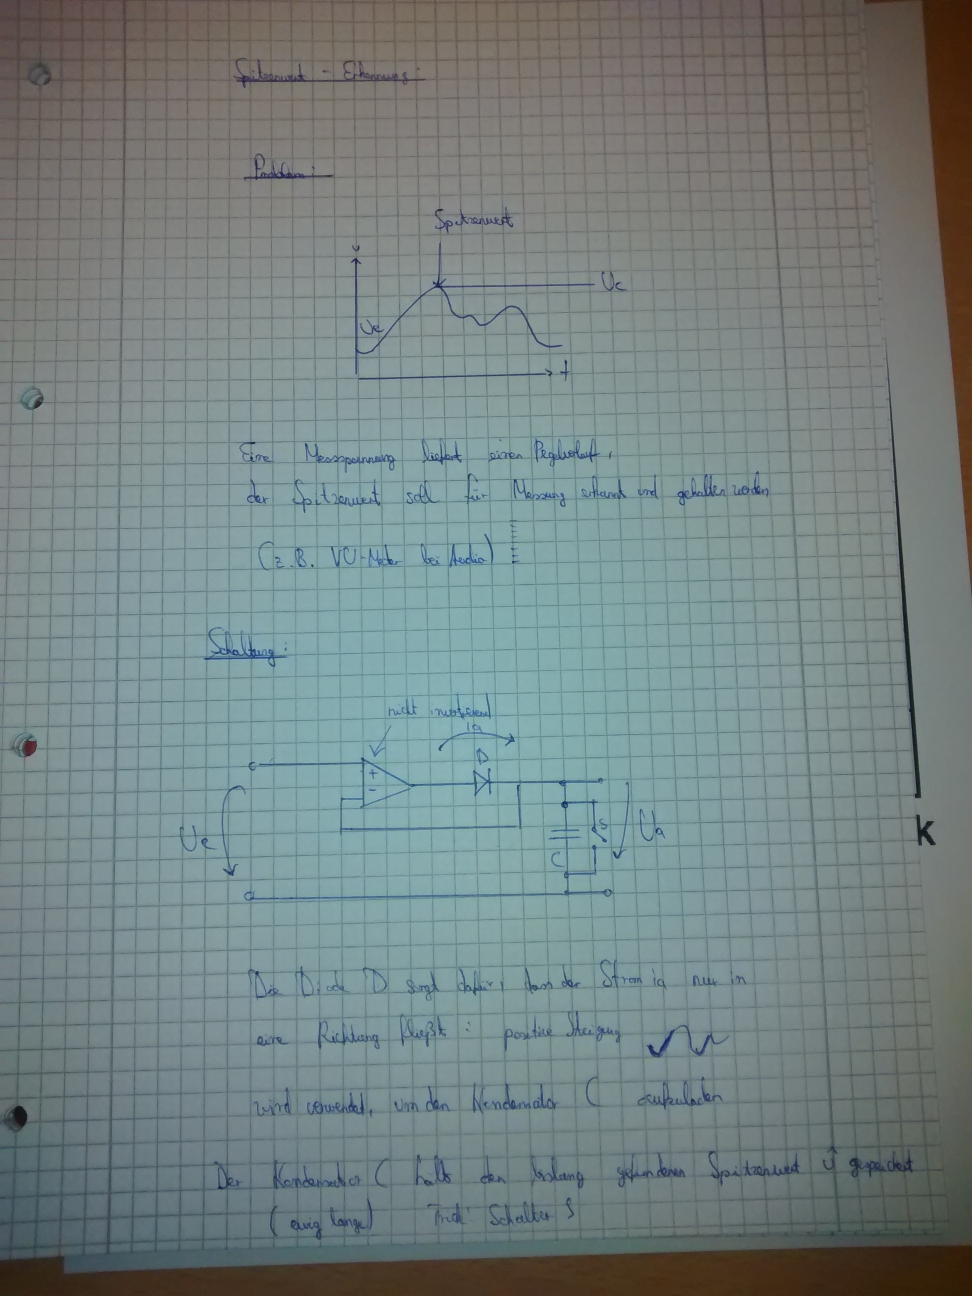 Spitzenwert - Erkennung:
Problem:
Spitzenwert
u
Uc
Ue
t
Eine Messspannung liefert einen Pegelverlauf,
der Spitzenwert soll für Messung erkannt und gehalten werden
(z.B. VU-Meter bei Audio)
Schaltung:
nicht invertierend
ia
D
+
-
Ue
S
Ua
C
k
Die Diode D sorgt dafür, dass der Strom ia nur in
eine Richtung fließt: positive Steigung
wird verwendet, um den Kondensator C aufzuladen
Der Kondensator C hält den bislang gefundenen Spitzenwert û gespeichert
(ewig lange) Schalter S